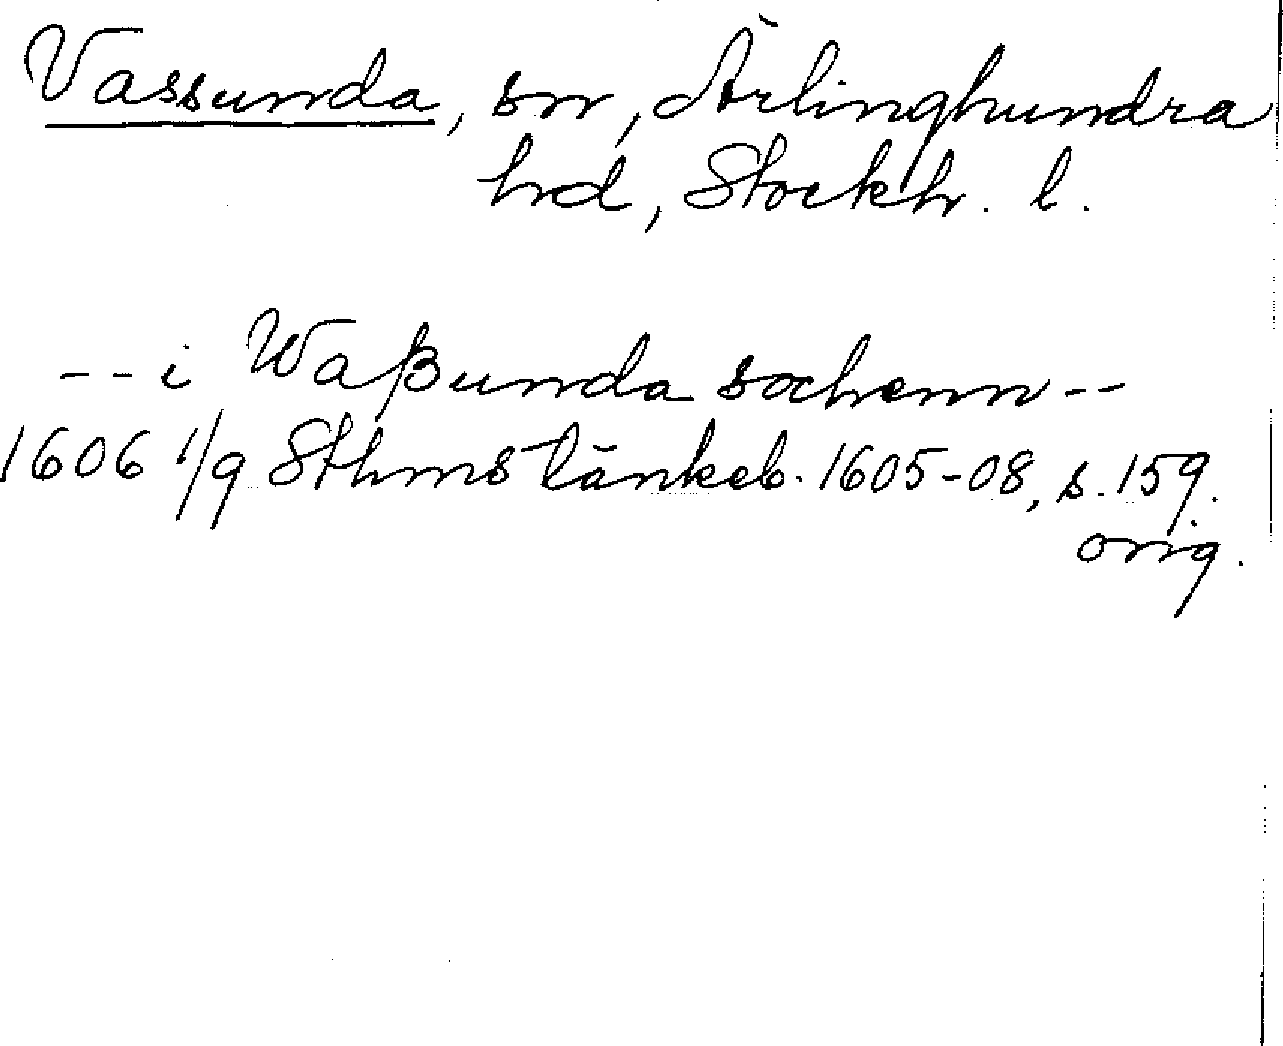 Vassunda, sn, Ärlinghundra
hd, Stockh. l.
-- i Waßunda sochenn --
1606 1/9 Sthms tänkeb. 1605-08, s. 159.
orig.